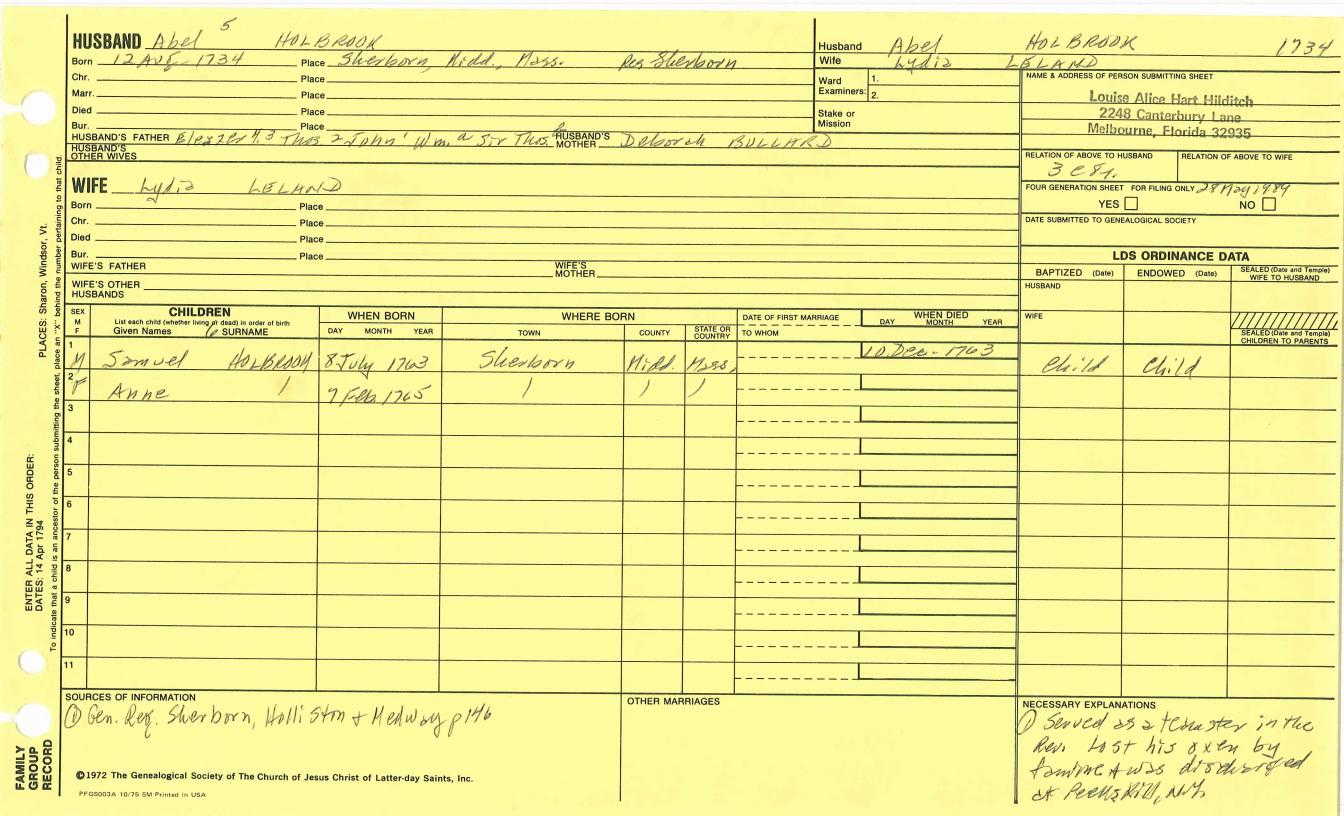 5
HUSBAND Abel HOLBROOK
Born 12 Aug. 1734 Place Sherborn, Midd., Mass. Res Sherborn
Chr. Place
Marr. Place
Died Place
Bur. Place
HUSBAND'S FATHER Eleazer 4,3 Thos 2 John 1 Wm. a Sir Thos. HUSBAND'S MOTHER Deborah BULLARD
HUSBAND'S OTHER WIVES
Husband Abel HOLBROOK 1734
Wife Lydia LELAND
Ward Examiners: 1.
2.
Stake or Mission
NAME & ADDRESS OF PERSON SUBMITTING SHEET
Louise Alice Hart Hilditch
2248 Canterbury Lane
Melbourne, Florida 32935
RELATION OF ABOVE TO HUSBAND RELATION OF ABOVE TO WIFE
3 c 8r.
FOUR GENERATION SHEET FOR FILING ONLY 28 May 1984
YES NO
DATE SUBMITTED TO GENEALOGICAL SOCIETY
WIFE Lydia LELAND
Born Place
Chr. Place
Died Place
Bur. Place
WIFE'S FATHER WIFE'S MOTHER
WIFE'S OTHER HUSBANDS
LDS ORDINANCE DATA
BAPTIZED (Date) ENDOWED (Date) SEALED (Date and Temple) WIFE TO HUSBAND
HUSBAND
WIFE
SEALED (Date and Temple) CHILDREN TO PARENTS
SEX M F
CHILDREN
List each child (whether living or dead) in order of birth
Given Names 6 SURNAME
WHEN BORN
DAY MONTH YEAR
WHERE BORN
TOWN COUNTY STATE OR COUNTRY
DATE OF FIRST MARRIAGE
TO WHOM
WHEN DIED
DAY MONTH YEAR
1 M Samuel HOLBROOK 8 July 1763 Sherborn Midd. Mass. 10 Dec. 1763 Child Child
2 F Anne / 7 Feb 1765 / / /
3
4
5
6
7
8
9
10
11
SOURCES OF INFORMATION
① Gen. Reg. Sherborn, Holliston & Medway p 146
OTHER MARRIAGES
NECESSARY EXPLANATIONS
① Served as a teamster in the
Rev. Lost his oxen by
famine & was discharged
at Peekskill, N.Y.
©1972 The Genealogical Society of The Church of Jesus Christ of Latter-day Saints, Inc.
PFGS003A 10/75 5M Printed in USA
FAMILY GROUP RECORD
ENTER ALL DATA IN THIS ORDER:
DATES: 14 Apr 1794 PLACES: Sharon, Windsor, Vt.
To indicate that a child is an ancestor of the person submitting the sheet, place an "X" behind the number pertaining to that child.